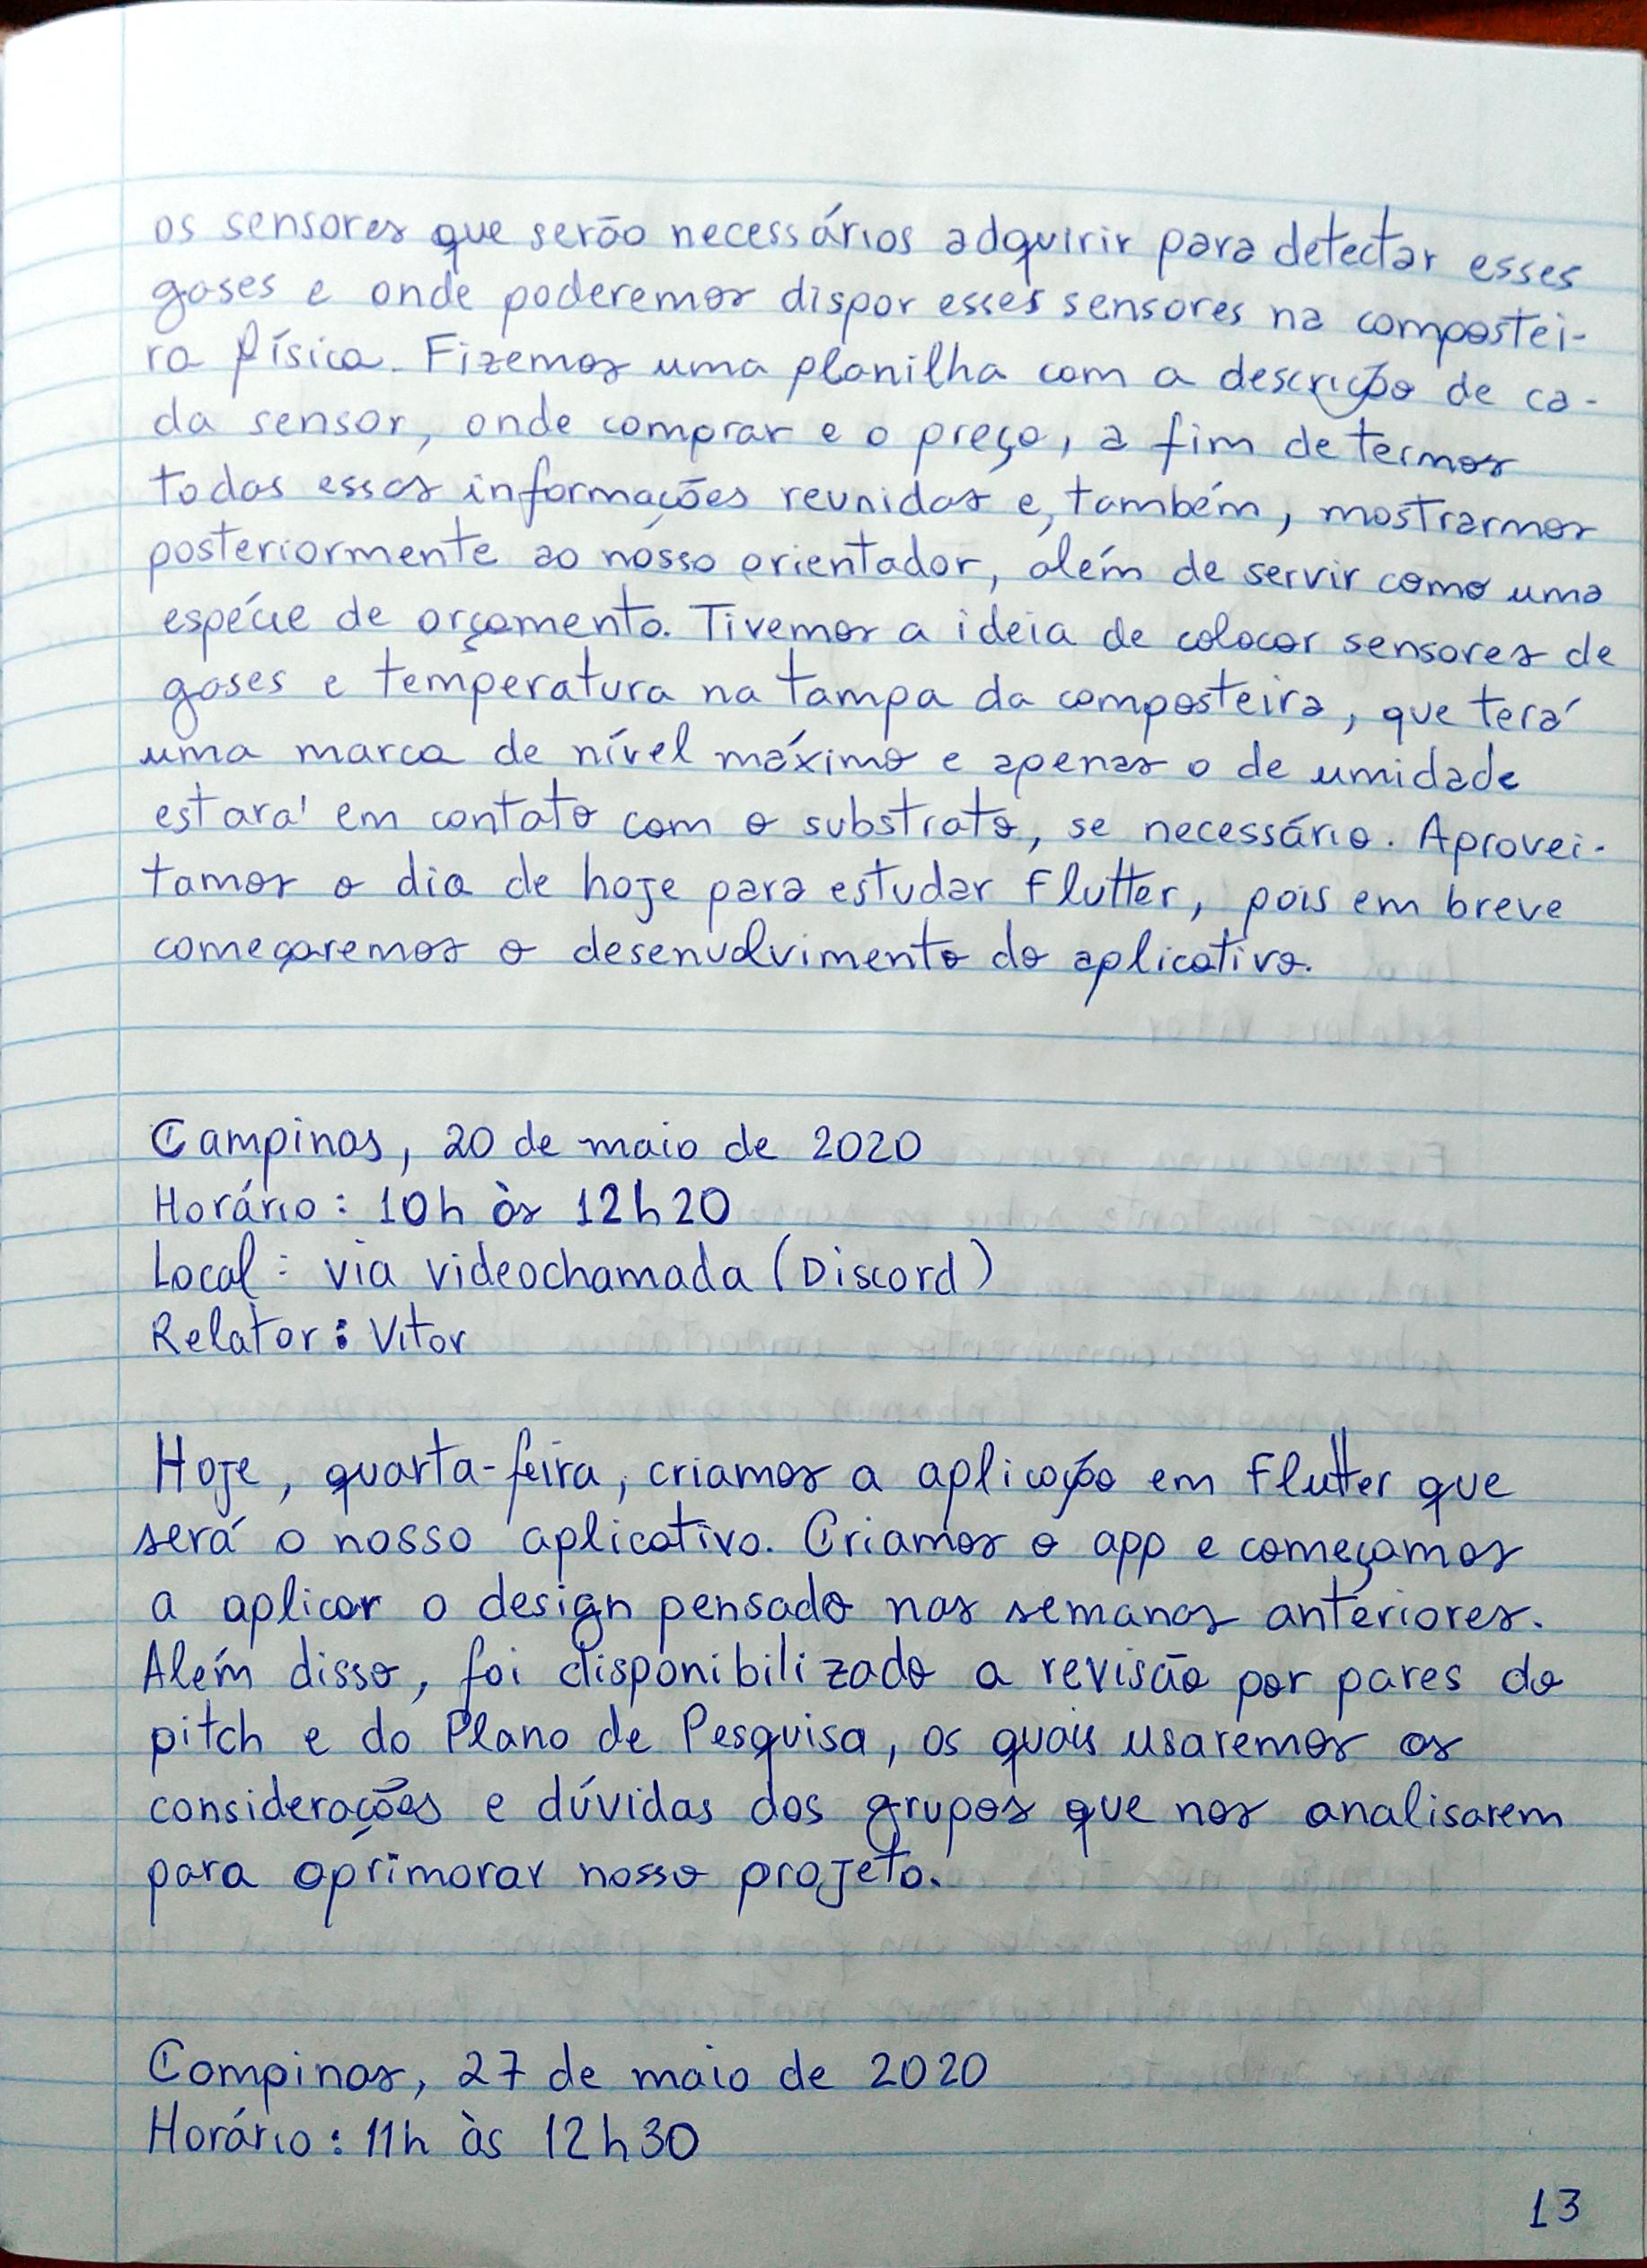 os sensores que serão necessários adquirir para detectar esses
gases e onde poderemos dispor esses sensores na compostei-
ra física. Fizemos uma planilha com a descrição de ca-
da sensor, onde comprar e o preço, a fim de termos
todas essas informações reunidas e, também, mostrarmos
posteriormente ao nosso orientador, além de servir como uma
espécie de orçamento. Tivemos a ideia de colocar sensores de
gases e temperatura na tampa da composteira, que terá
uma marca de nível máximo e apenas o de umidade
estará em contato com o substrato, se necessário. Aprovei-
tamos o dia de hoje para estudar Flutter, pois em breve
começaremos o desenvolvimento do aplicativo.
Campinas, 20 de maio de 2020
Horário: 10h às 12h20
Local: via videochamada (Discord)
Relator: Vitor
Hoje, quarta-feira, criamos a aplicação em Flutter que
será o nosso aplicativo. Criamos o app e começamos
a aplicar o design pensado nas semanas anteriores.
Além disso, foi disponibilizado a revisão por pares do
pitch e do Plano de Pesquisa, os quais usaremos as
considerações e dúvidas dos grupos que nos analisarem
para aprimorar nosso projeto.
Campinas, 27 de maio de 2020
Horário: 11h às 12h30
13